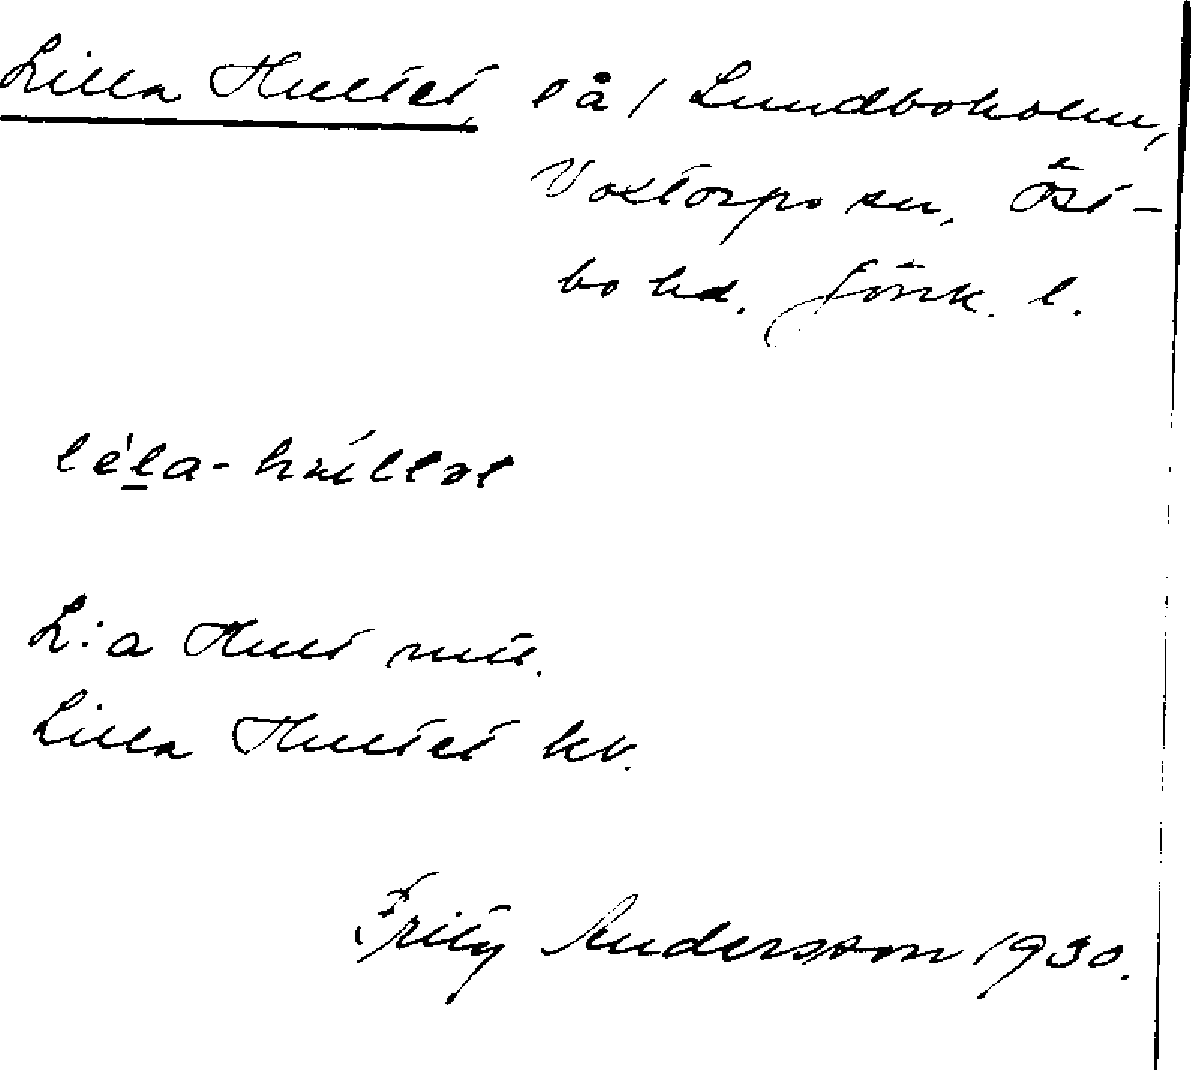 Lilla Hultet lä/ Lundboholm,
Voxtorps sn, Öst-
bo hd. Jönk. l.
L:a Hult
Lilla Hultet kv.
Fritz Andersson 1930.